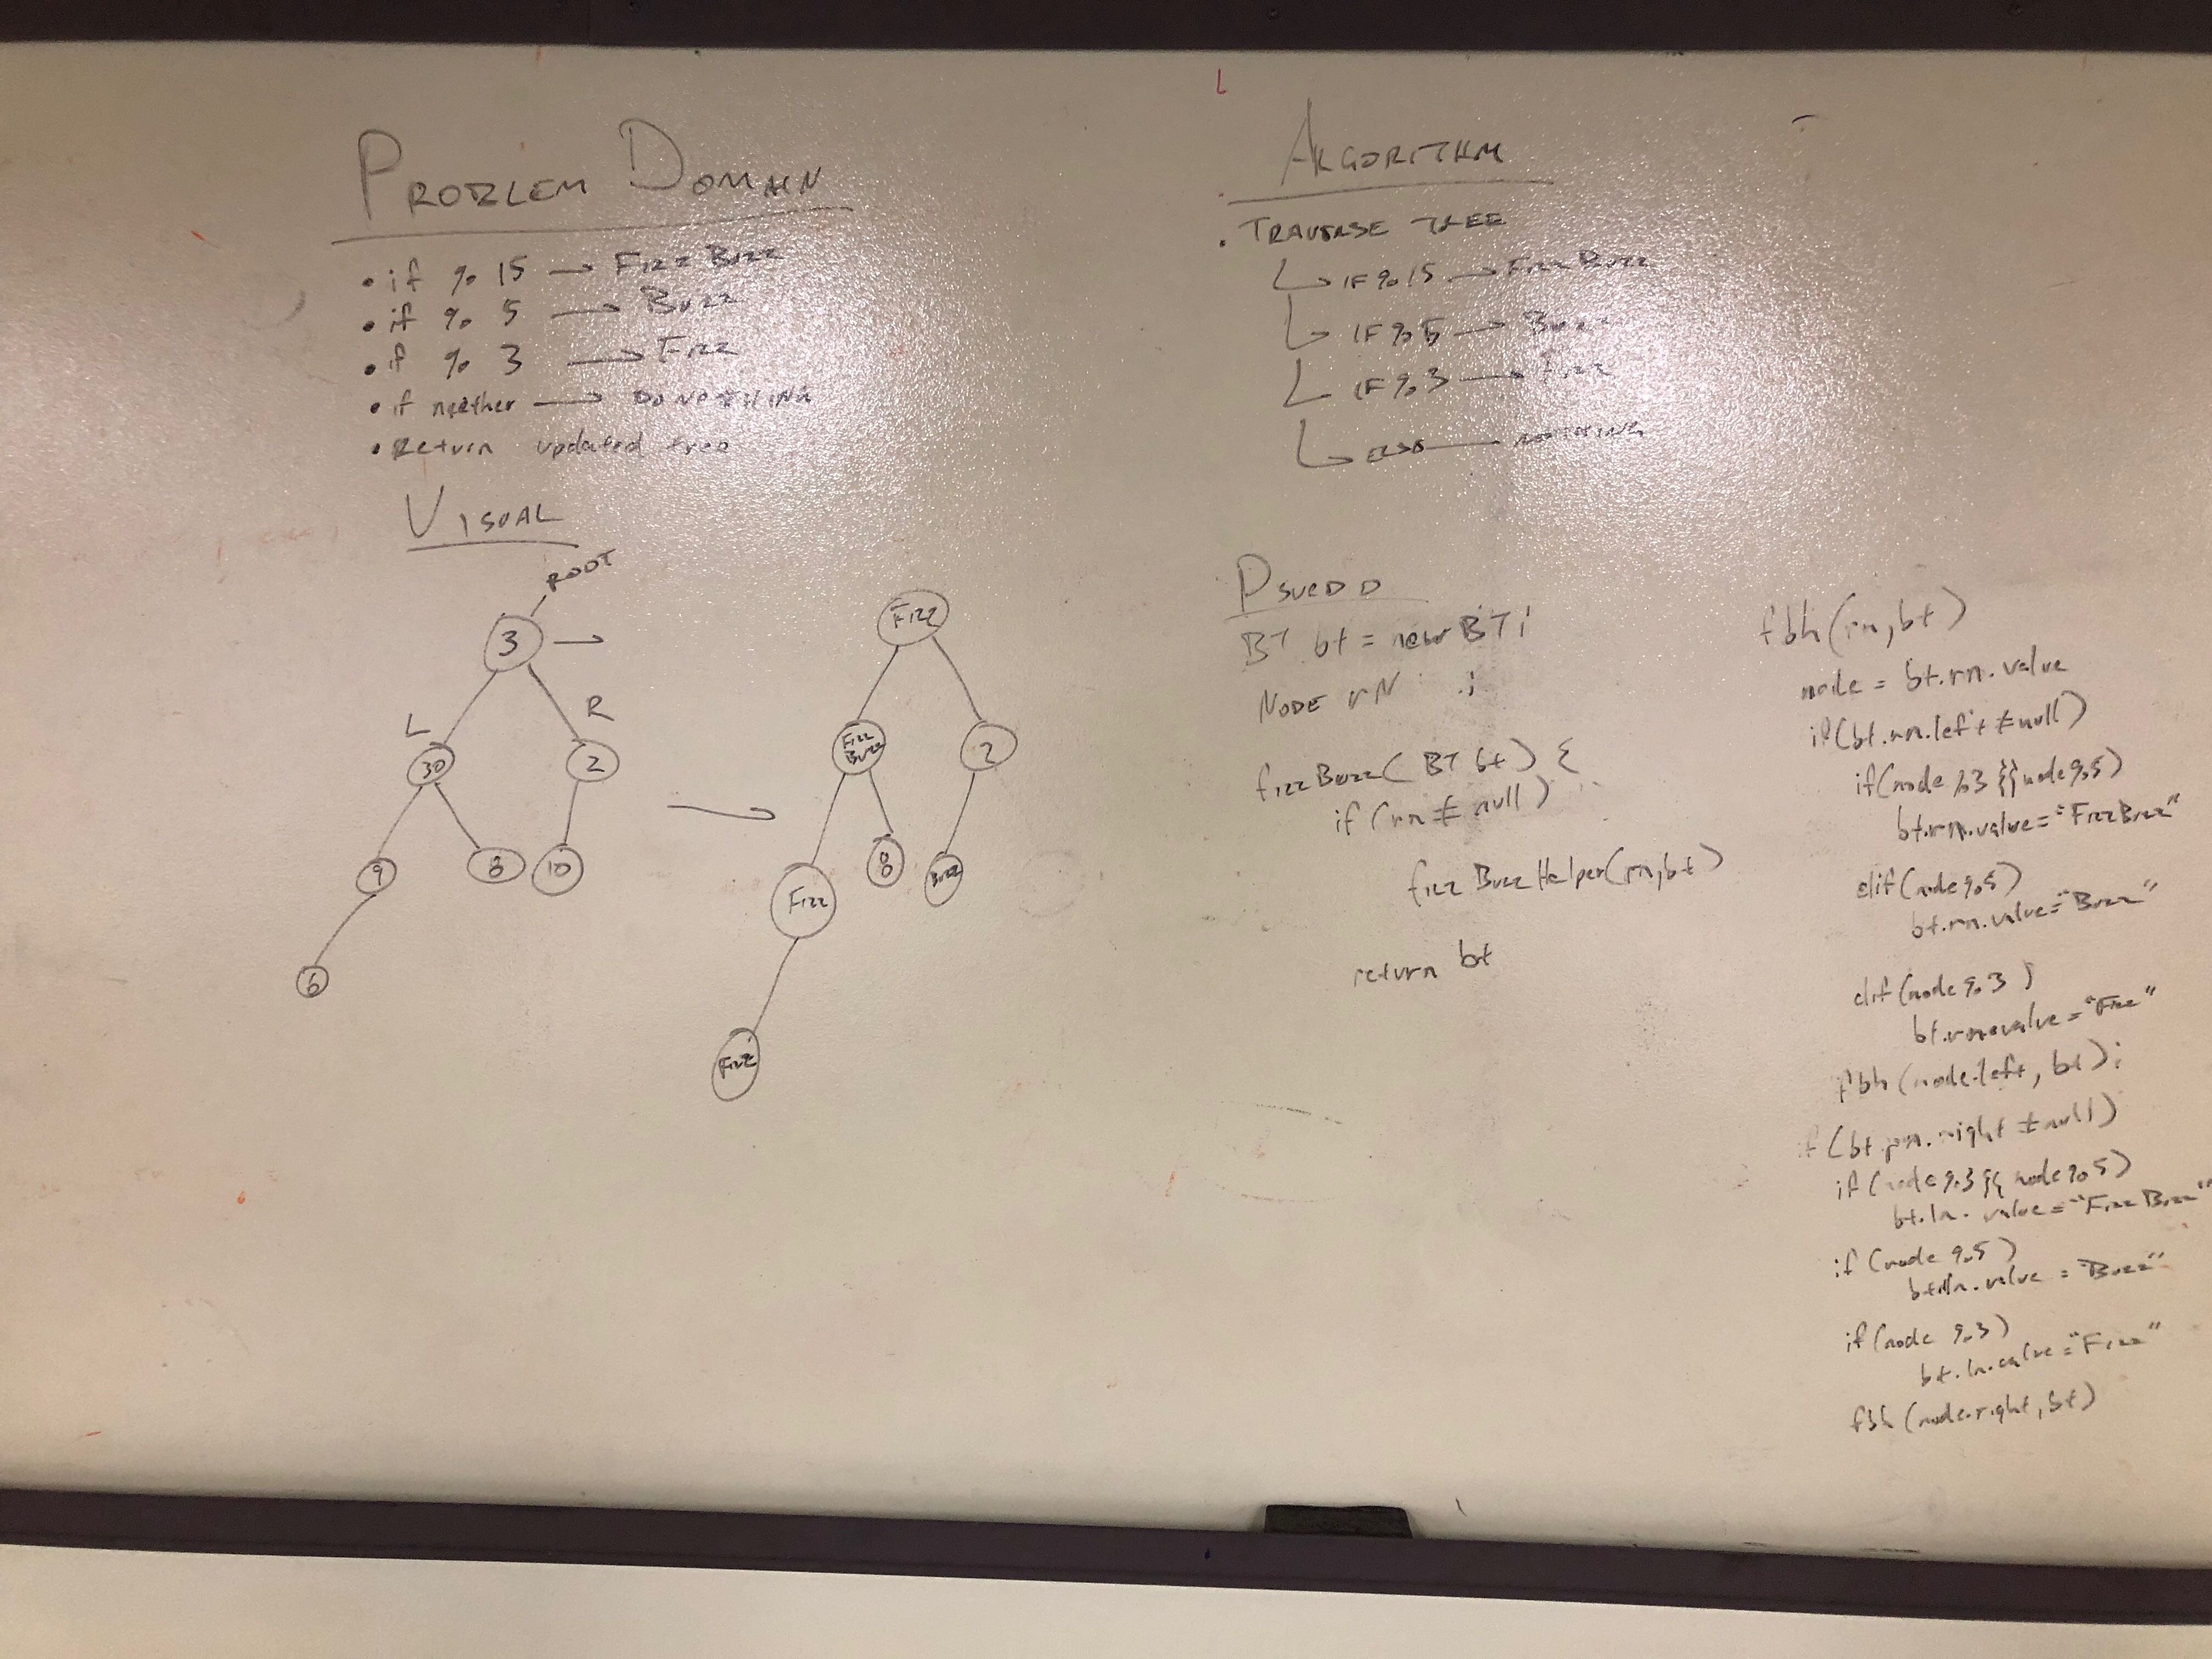 PROBLEM DOMAIN
• if % 15 → FizzBuzz
• if % 5 → Buzz
• if % 3 → Fizz
• if neither → DO NOTHING
• Return updated tree
VISUAL
ROOT
3 →
L R
30 2
9 8 10
6
→
Fizz
Fizz Buzz 2
Fizz 8 Buzz
Fizz
ALGORITHM
• TRAVERSE TREE
IF % 15 → FizzBuzz
IF % 5 → Buzz
IF % 3 → Fizz
ELSE NOTHING
PSUEDO
BT bt = new BT;
NODE rN ;
fizzBuzz( BT bt) {
if (rn ≠ null)
fizzBuzzHelper(rn,bt)
return bt
fbh(rn,bt)
node = bt.rn.value
if(bt.rn.left ≠ null)
if(node %3 && node %5)
bt.rn.value="FizzBuzz"
elif(node %5)
bt.rn.value="Buzz"
elif(node %3)
bt.rn.value="Fizz"
fbh(node.left, bt);
if(bt.rn.right ≠ null)
if(node %3 && node %5)
bt.ln.value="FizzBuzz"
if(node %5)
bt.ln.value = "Buzz"
if(node %3)
bt.ln.value="Fizz"
fbh(node.right,bt)